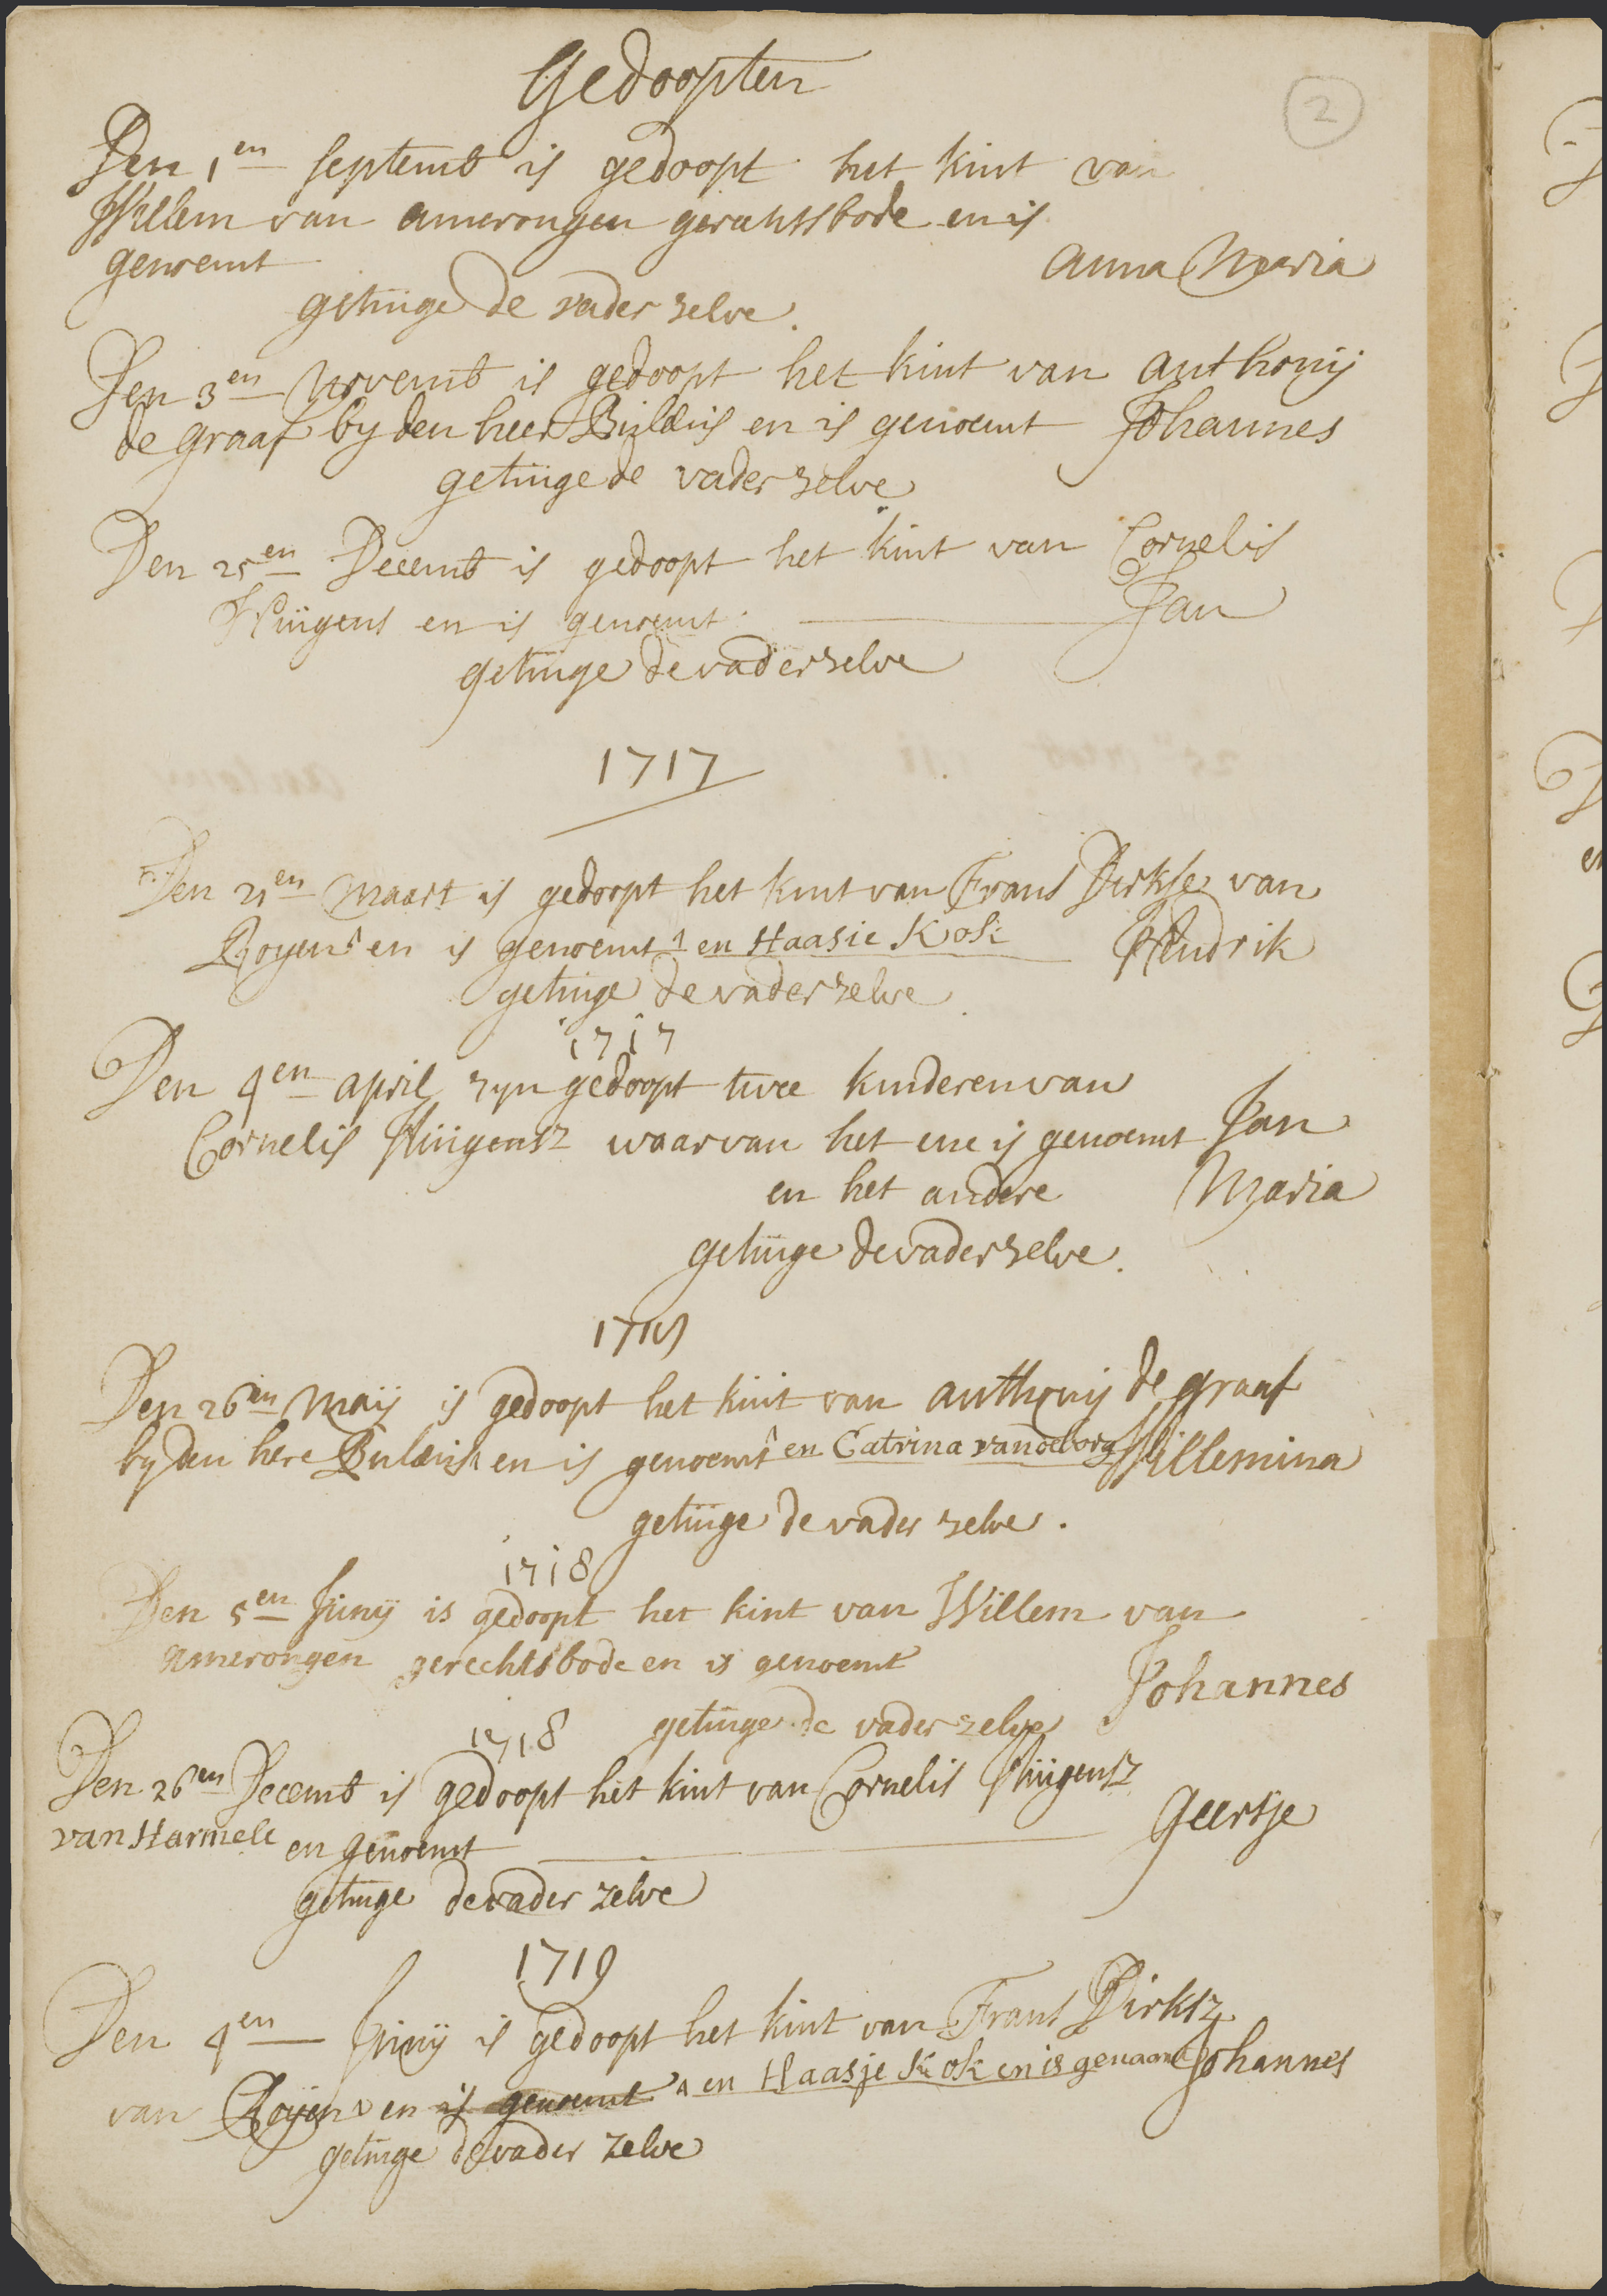 Gedoopten
2
Den 1en septemb is gedoopt het kint van
Willem van amerongen gerechtsbode en is
genoemt Anna Maria
getuige de vader zelve.
Den 3en Novemb is gedoopt het kint van Anthonij
de graaf by den heer en is genoemt Johannes
getuige de vader zelve
Den 25en Decemb is gedoopt het kint van Cornelis
Huigens en is genoemt Jan
getuige de vader zelve
1717
Den 21en Maart is gedoopt het kint van Frans Dirkse van
Royen en is genoemt en Haasie Kok Hendrik
getuige de vader zelve
1717
Den 4en april zyn gedoopt twee kinderen van
Cornelis Huigensz waarvan het ene is genoemt Jan
en het andere Maria
getuige de vader zelve.
Den 26en Maij is gedoopt het kint van Anthonij de graaf
by den here en is genoemt en Catrina vandeborg Willemina
getuige de vader zelve.
1718
Den 5en Junij is gedoopt het kint van Willem van
amerongen gerechtsbode en is genoemt
Johannes
getuige de vader zelve
1718
Den 26en Decemb is gedoopt het kint van Cornelis Huigensz
van Harmele en genoemt Geertje
getuige de vader zelve
1719
Den 4en Junij is gedoopt het kint van Frans Dirksz
van Roijen en is genoemt en Haasje Kok en is genaamt Johannes
getuige de vader zelve